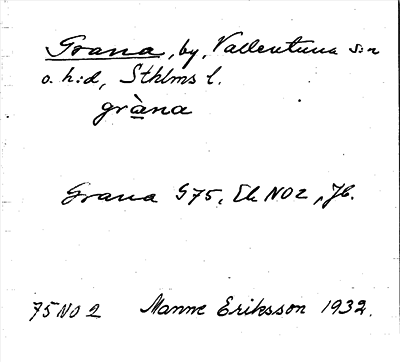 Grana, by, Vallentuna s:n
o. h:d, Sthlms l.
gràna
Grana G75, Ek NO2, Jb.
75 NO 2 Manne Eriksson 1932.